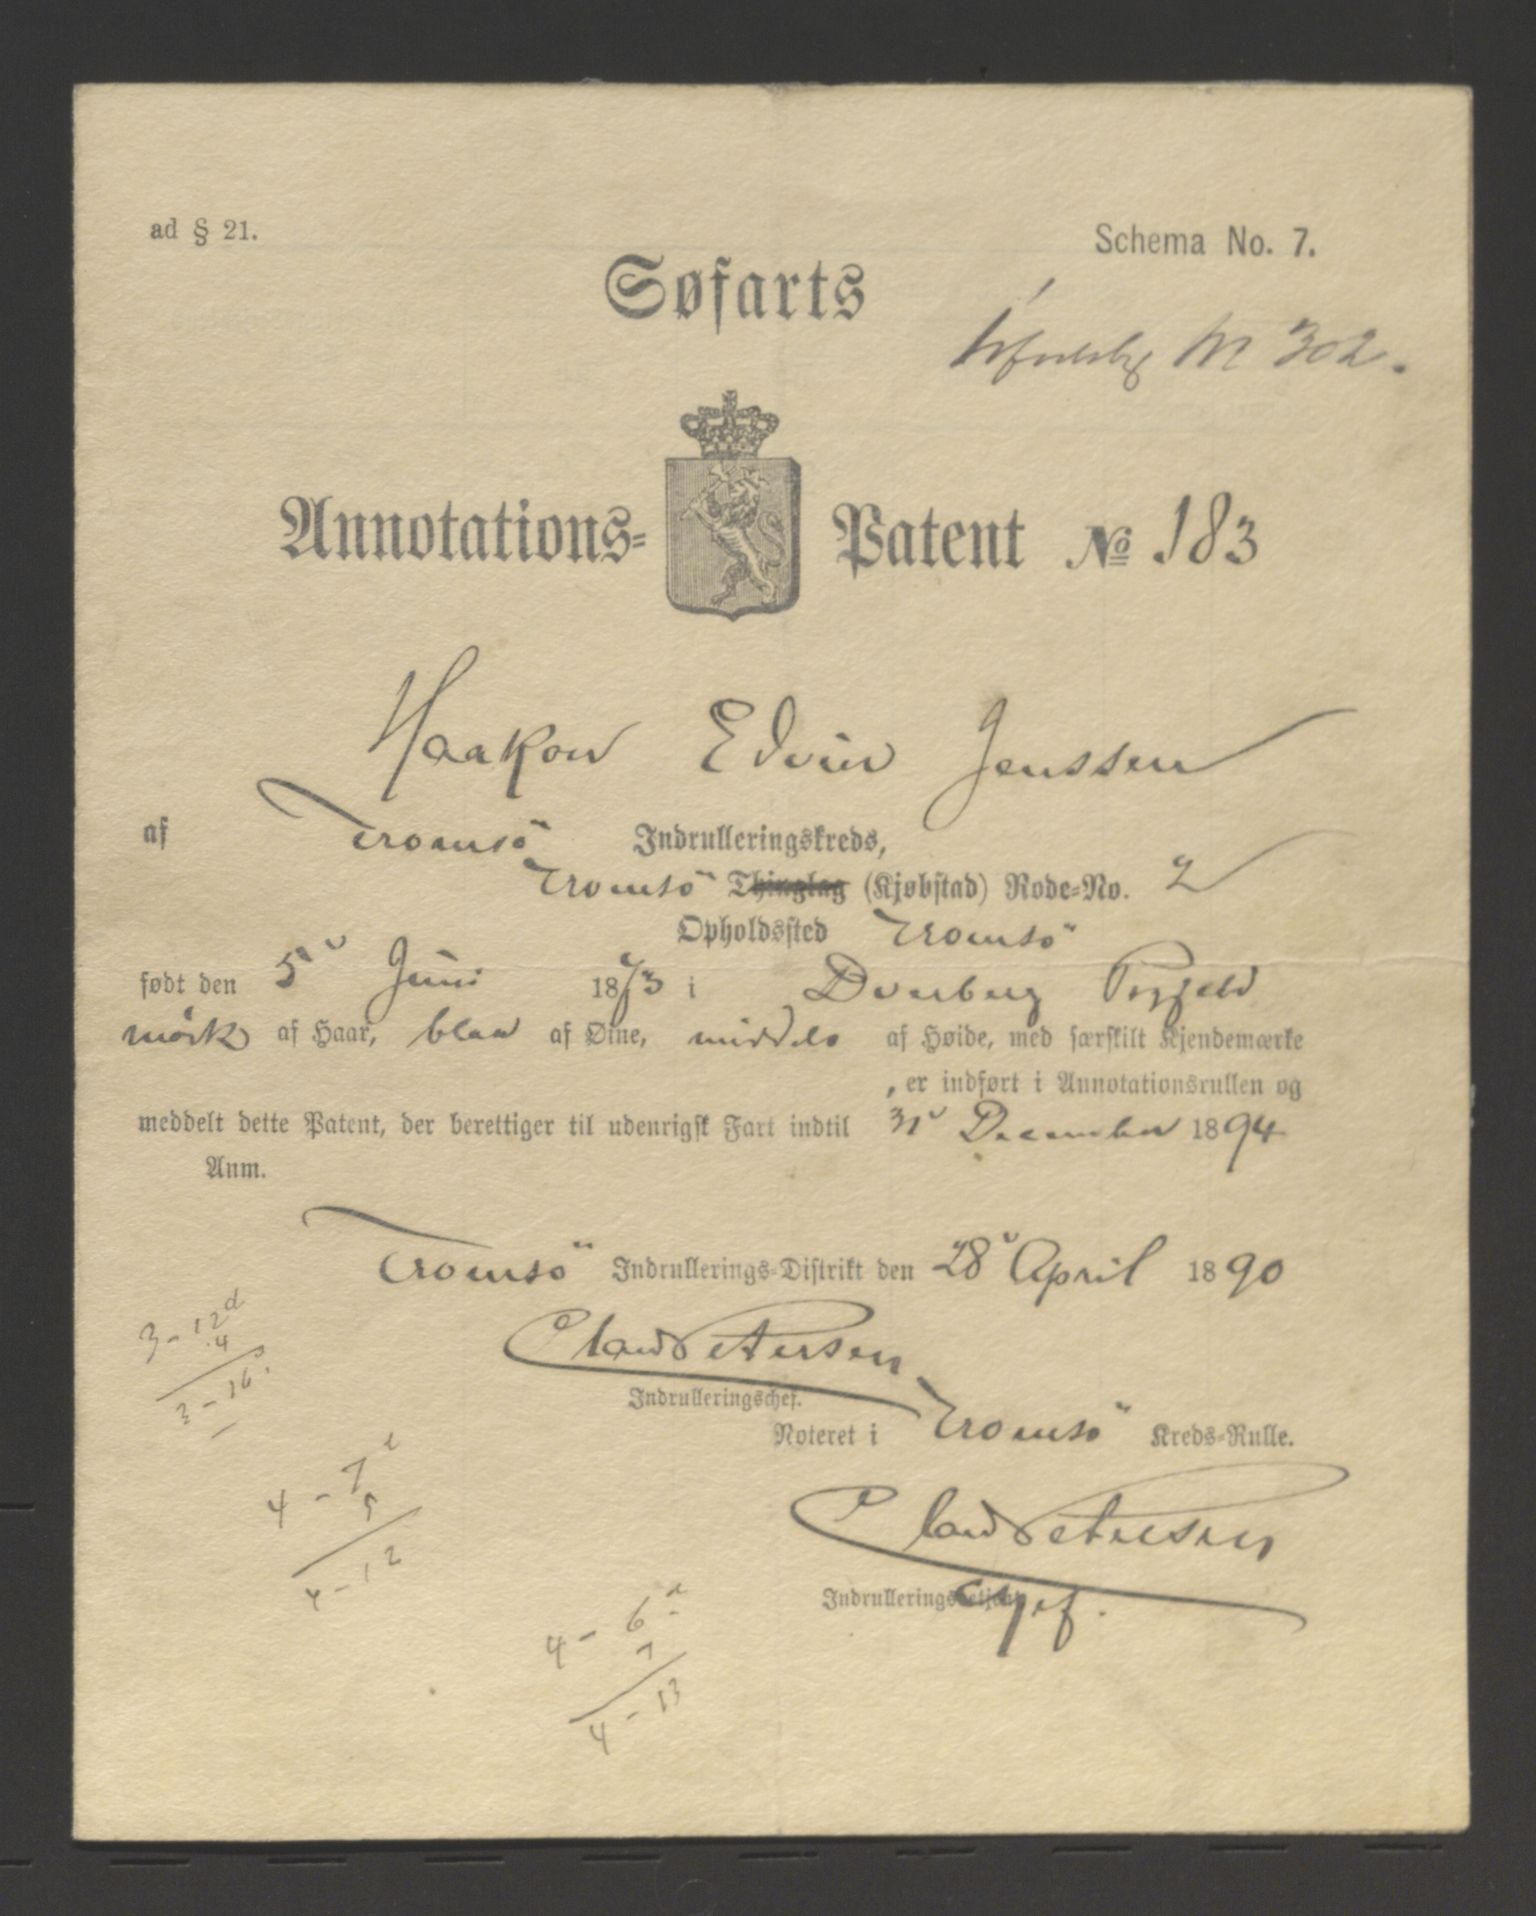 ad § 21.
Schema No. 7.
Søfarts
No 302.
Annotations- Patent No 183
Haakon Edvin Jenssen
af Tromsö Indrulleringskreds,
Tromsö Thinglag (Kjøbstad) Rode-No. 2
Opholdssted Tromsö
født den 5 Juni 1873 i Dverberg
mörk af Haar, blaa af Øine, middels af Høide, med særskilt Kjendemærke
, er indført i Annotationsrullen og
meddelt dette Patent, der berettiger til udenrigsk Fart indtil 31 December 1894
Anm.
Tromsö Indrullerings-Distrikt den 28 April 1890
Claus Petersen
Indrulleringschef.
Noteret i Tromsö Kreds-Rulle.
Claus Petersen
Indrulleringsbetjent chef.
3 - 12 d
4
3 - 16
4 - 7
5
4 - 12
4 - 6
7
4 - 13